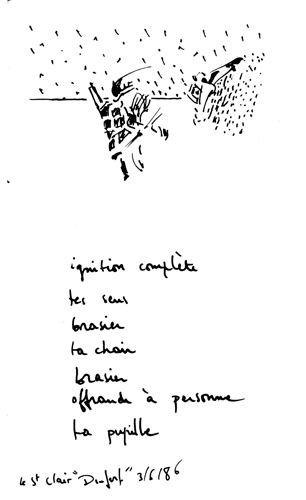 ignition complète
tes sens
brasier
ta chair
brasier
offrande à personne
ta pupille
le St Clair "Denfert" 3/6/86